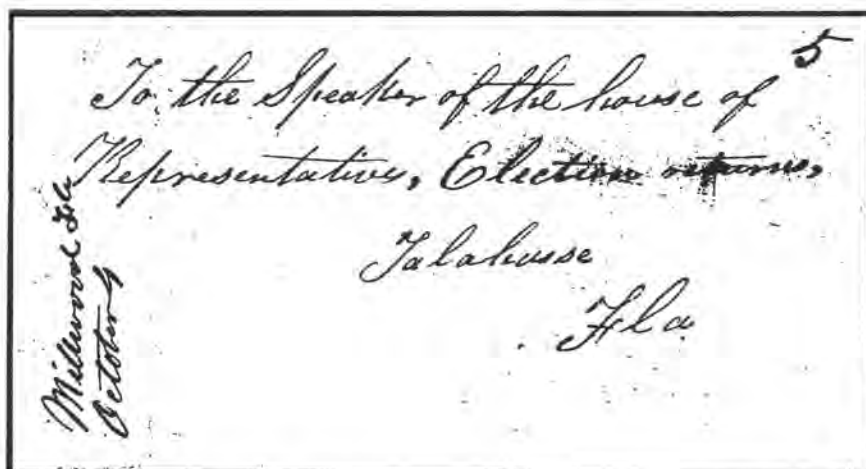 5
To the Speaker of the house of
Representatives, Election returns,
Talahasse
Fla
Millwood Fla
October 9